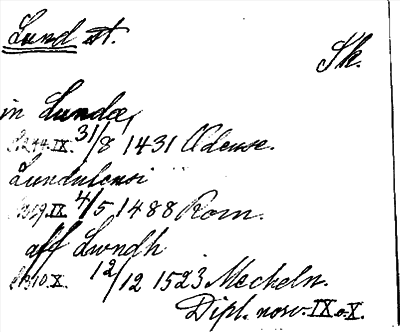 Lund st.
Sk.
in Lundæ,
S.244.IX. 31/8 1431 Odense.
Lundulensi
S.319.IX. 4/5 1488 Rom.
aff Lwndh
S.310.X. 12/12 1523 Mecheln.
Dipl. norv. IX o. X.